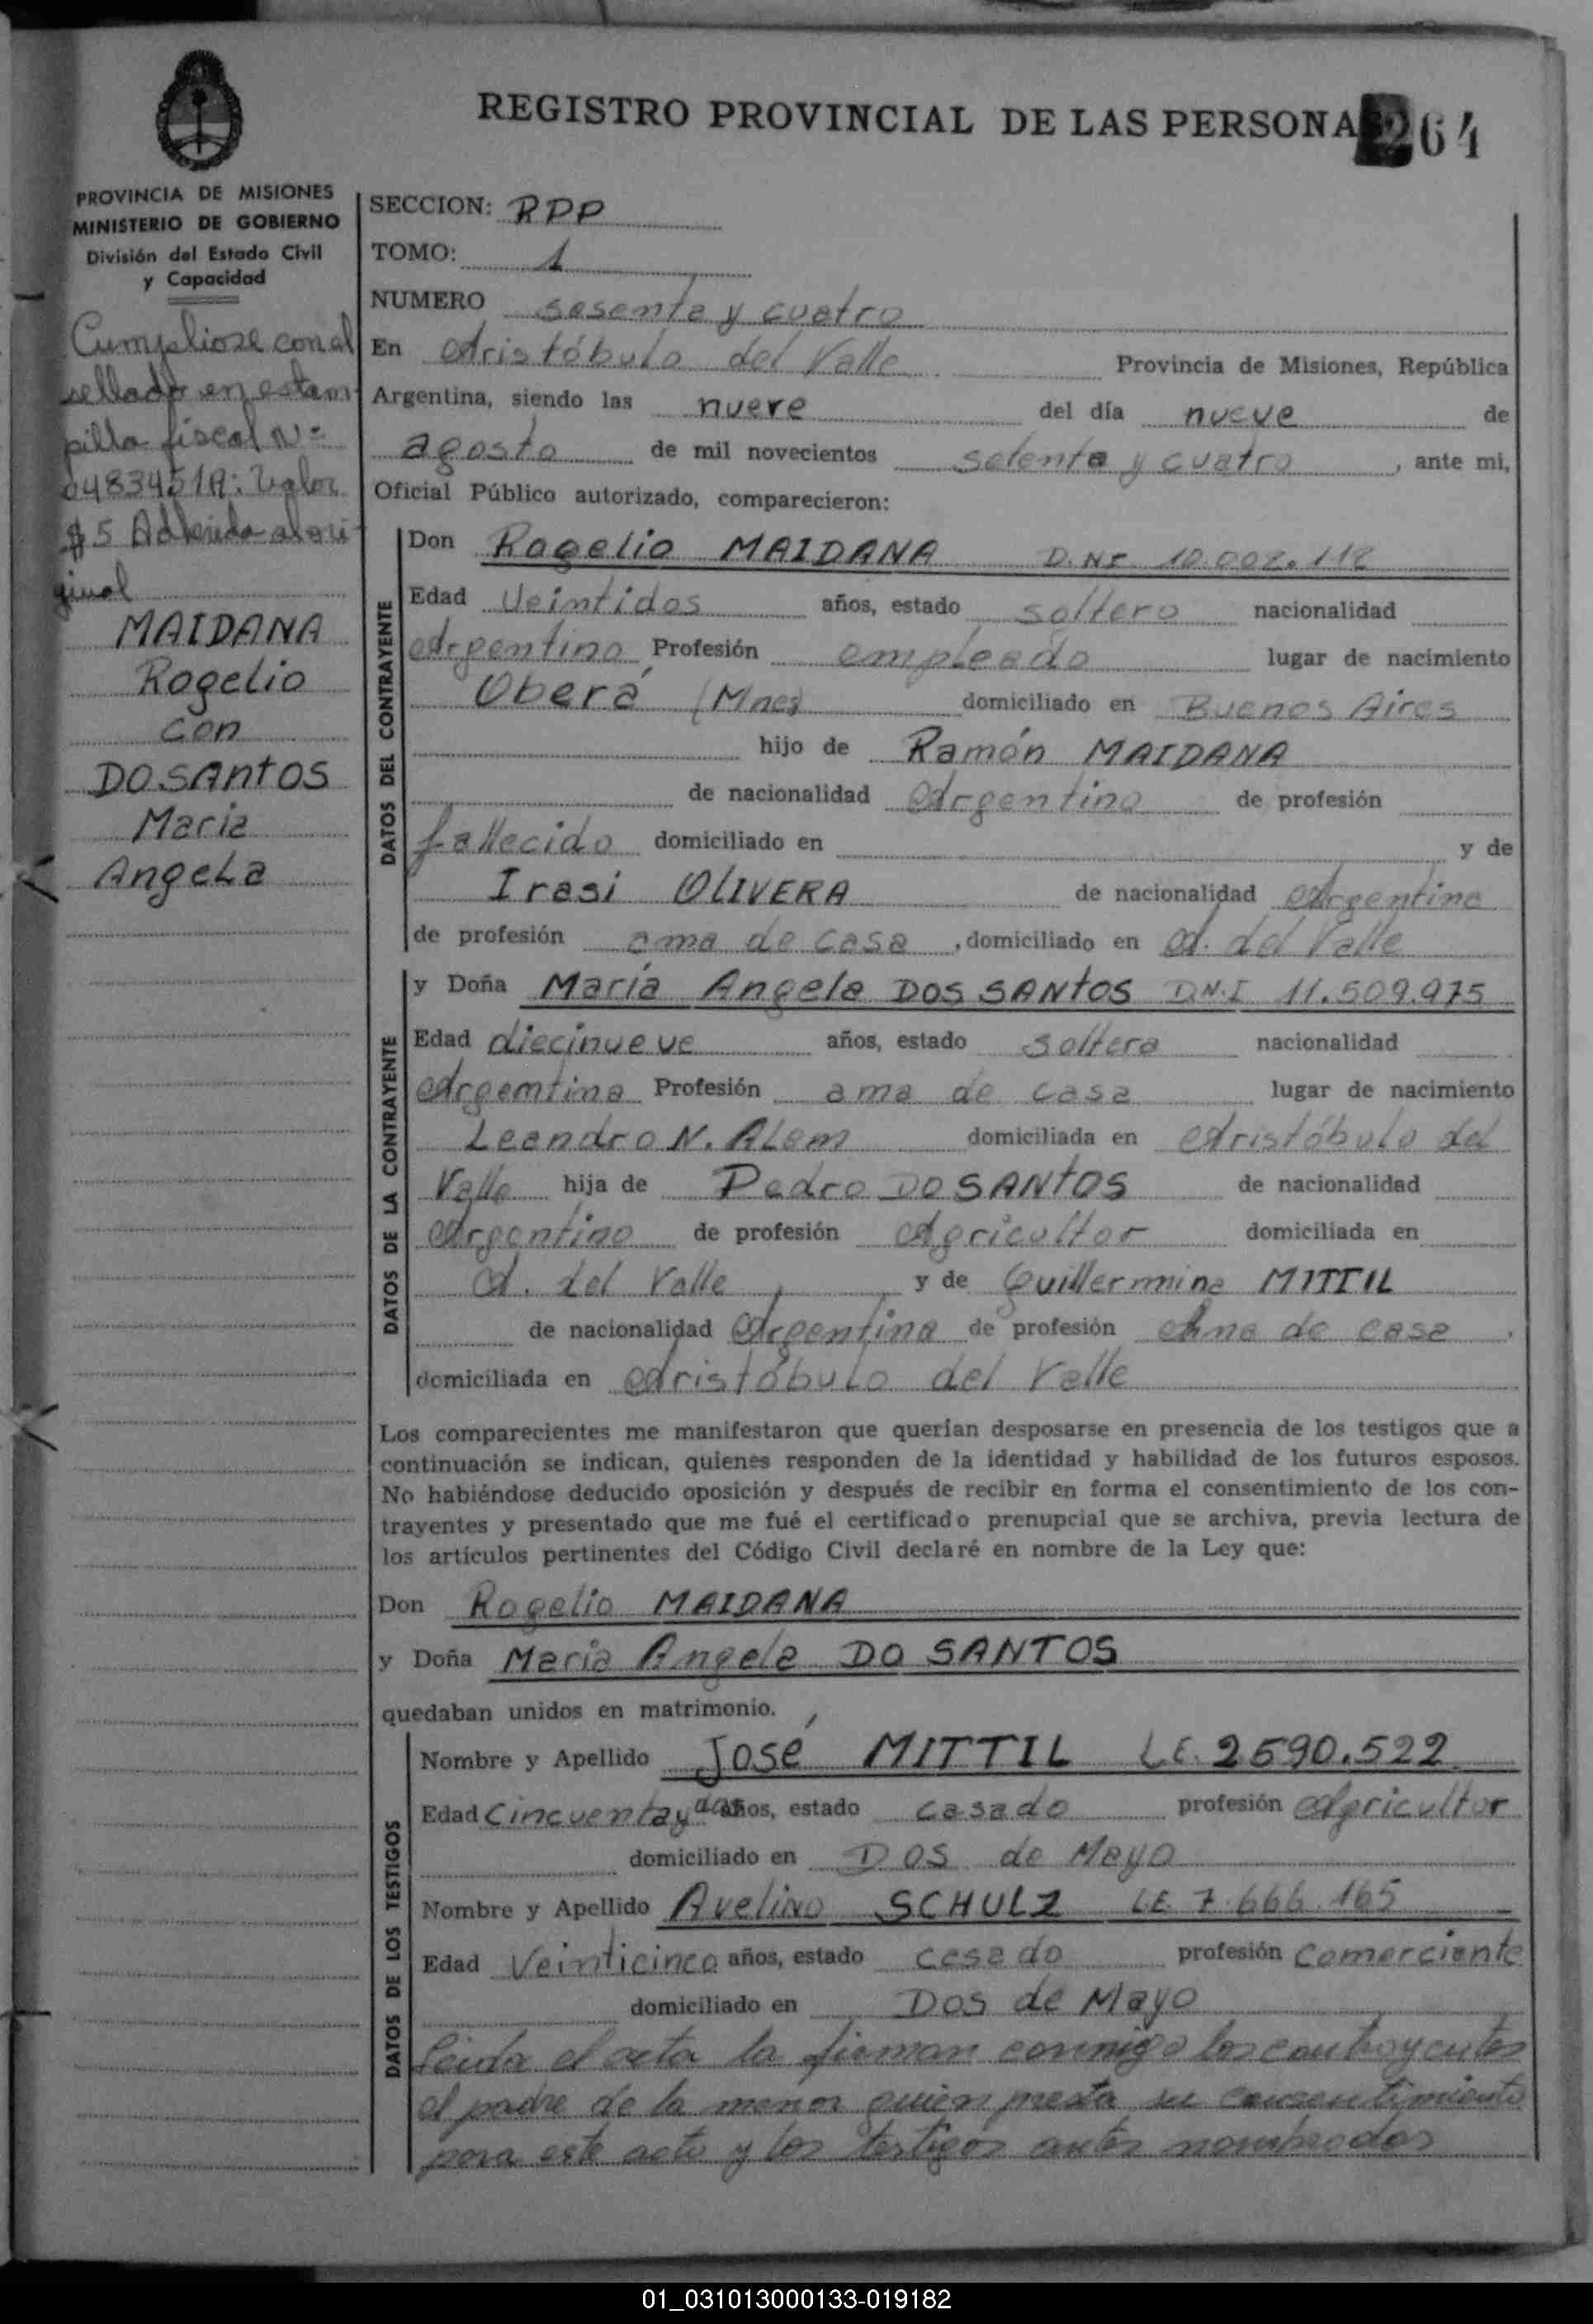 REGISTRO PROVINCIAL DE LAS PERSONAS 264
PROVINCIA DE MISIONES
MINISTERIO DE GOBIERNO
División del Estado Civil
y Capacidad
Cumpliose con al
sellado en estam-
pilla fiscal Nº
0483451A: Valor
$5 Adherida al ori-
ginal
MAIDANA
Rogelio
con
DO SANTOS
Maria
Angela
SECCION: RPP
TOMO: 1
NUMERO sesenta y cuatro
En Aristóbulo del Valle Provincia de Misiones, República
Argentina, siendo las nueve del día nueve de
agosto de mil novecientos setenta y cuatro, ante mi,
Oficial Público autorizado, comparecieron:
DATOS DEL CONTRAYENTE
Don Rogelio MAIDANA D.NI. 10.002.112
Edad Veintidos años, estado soltero nacionalidad
Argentino Profesión empleado lugar de nacimiento
Oberá (Mnes) domiciliado en Buenos Aires
hijo de Ramón MAIDANA
de nacionalidad Argentino de profesión
fallecido domiciliado en y de
Irasi OLIVERA de nacionalidad Argentina
de profesión ama de casa, domiciliado en A. del Valle
DATOS DE LA CONTRAYENTE
y Doña María Angela DOS SANTOS D.N.I 11.509.975
Edad diecinueve años, estado soltera nacionalidad
Argentina Profesión ama de casa lugar de nacimiento
Leandro N. Alem domiciliada en Aristóbulo del
Valle hija de Pedro DO SANTOS de nacionalidad
Argentino de profesión Agricultor domiciliada en
A. del Valle y de Guillermina MITTIL
de nacionalidad Argentina de profesión Ama de casa.
domiciliada en Aristóbulo del Valle
Los comparecientes me manifestaron que querían desposarse en presencia de los testigos que a
continuación se indican, quienes responden de la identidad y habilidad de los futuros esposos.
No habiéndose deducido oposición y después de recibir en forma el consentimiento de los con-
trayentes y presentado que me fué el certificado prenupcial que se archiva, previa lectura de
los artículos pertinentes del Código Civil declaré en nombre de la Ley que:
Don Rogelio MAIDANA
y Doña Maria Angela DO SANTOS
quedaban unidos en matrimonio.
DATOS DE LOS TESTIGOS
Nombre y Apellido José MITTIL L.E. 2590.522
Edad Cincuenta y dos años, estado casado profesión Agricultor
domiciliado en Dos de Mayo
Nombre y Apellido Avelino SCHULZ L.E. 7.666.165
Edad Veinticinco años, estado casado profesión Comerciante
domiciliado en Dos de Mayo
Leida el acta la firman conmigo los contrayentes
el padre de la menor quien presta su consentimiento
para este acto y los testigos antes nombrados
01_031013000133-019182